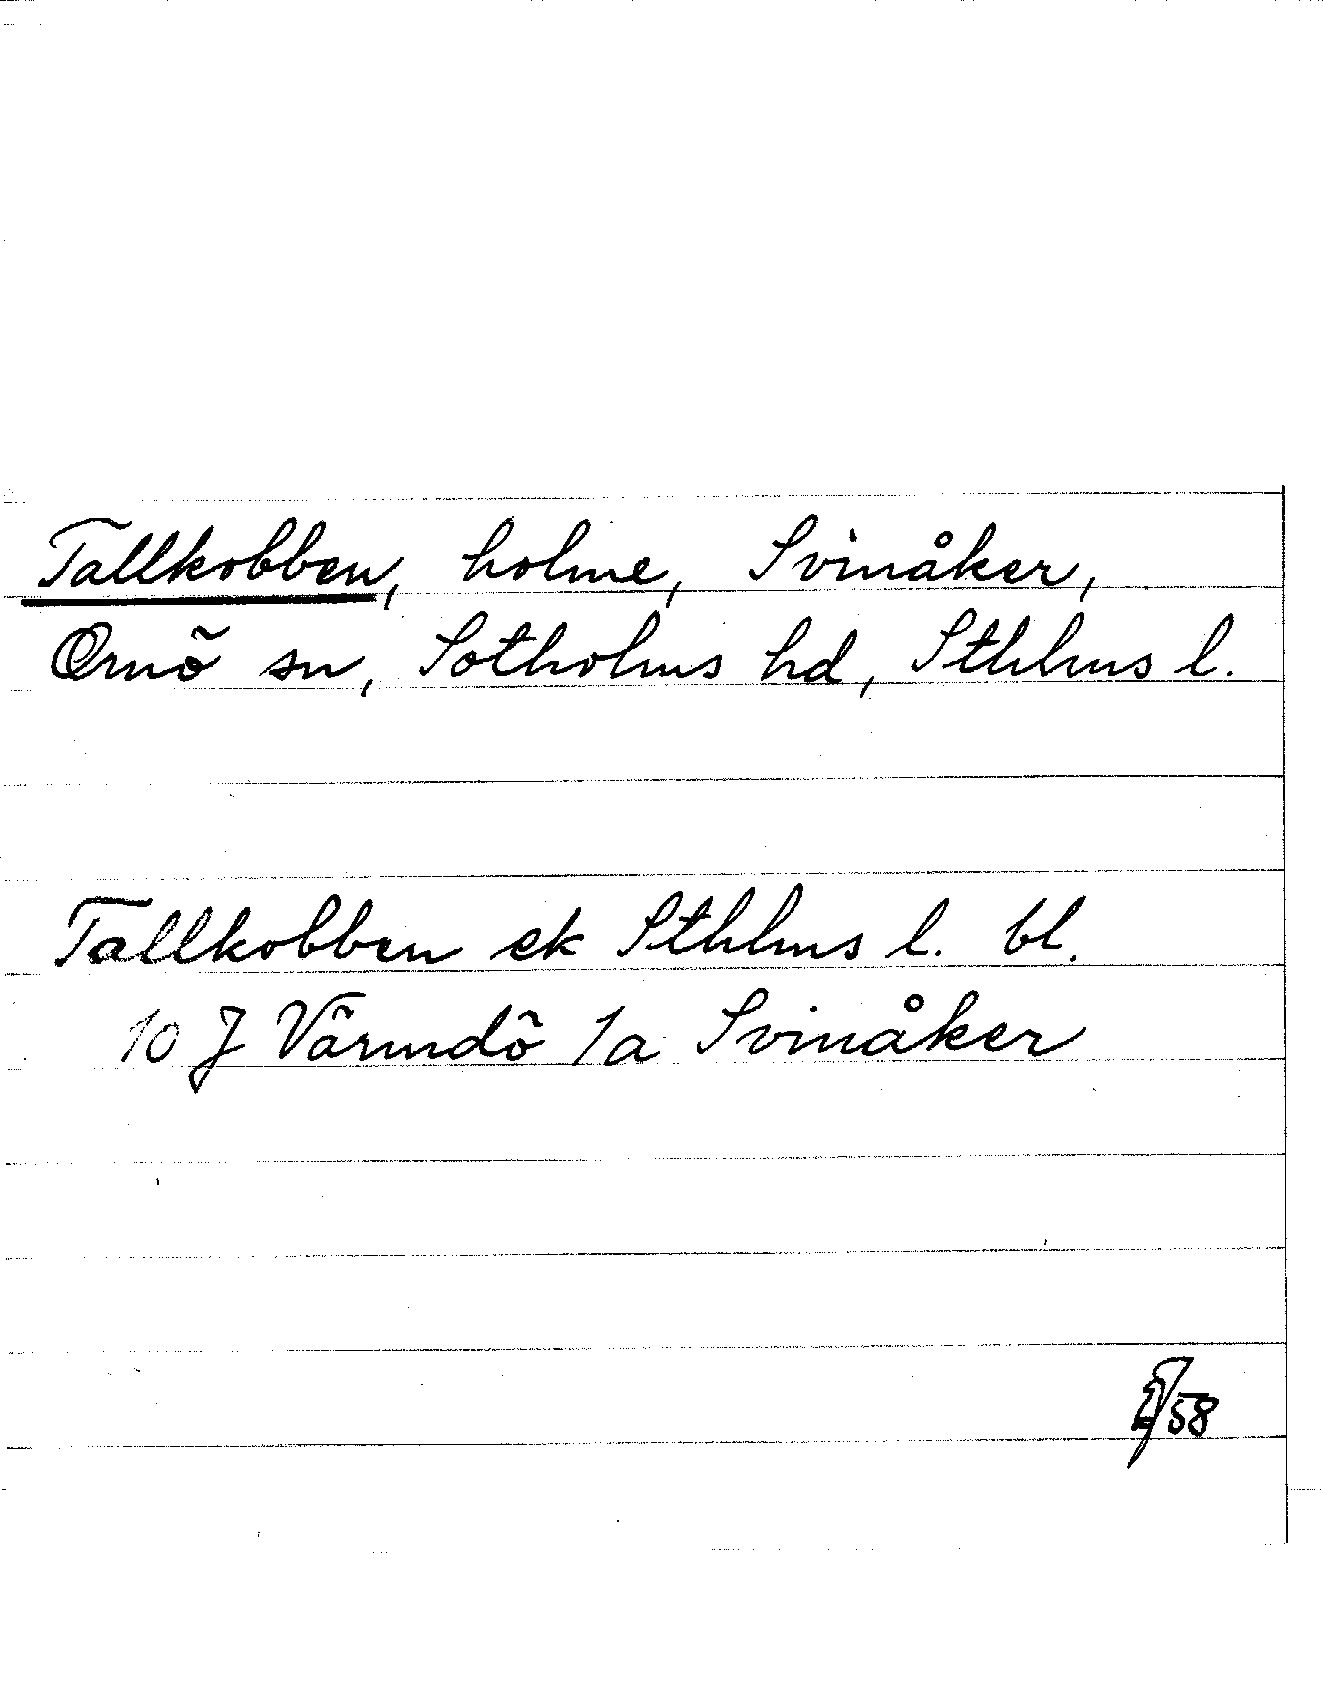 Tallkobben, holme, Svinåker,
Ornö sn, Sotholms hd, Sthlms l.
Tallkobben ek Sthlms l. bl.
10 J Värmdö 1a Svinåker
58